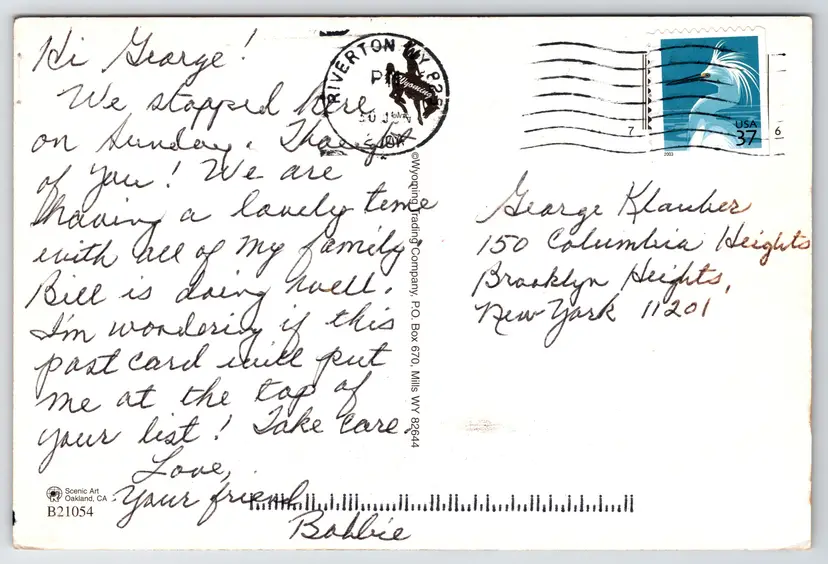 Hi George!
We stopped here
on Sunday. Thought
of you! We are
having a lovely time
with all of my family.
Bill is doing well.
I'm wondering if this
post card will put
me at the top of
your list! Take care.
Love,
Your friend
Bobbie
Scenic Art
Oakland, CA
B21054
RIVERTON WY 825
PM
Wyoming
30 J
©Wyoming Trading Company, P.O. Box 670, Mills WY 82644
USA
37
2003
7
6
George Klauber
150 Columbia Heights
Brooklyn Heights,
New York 11201